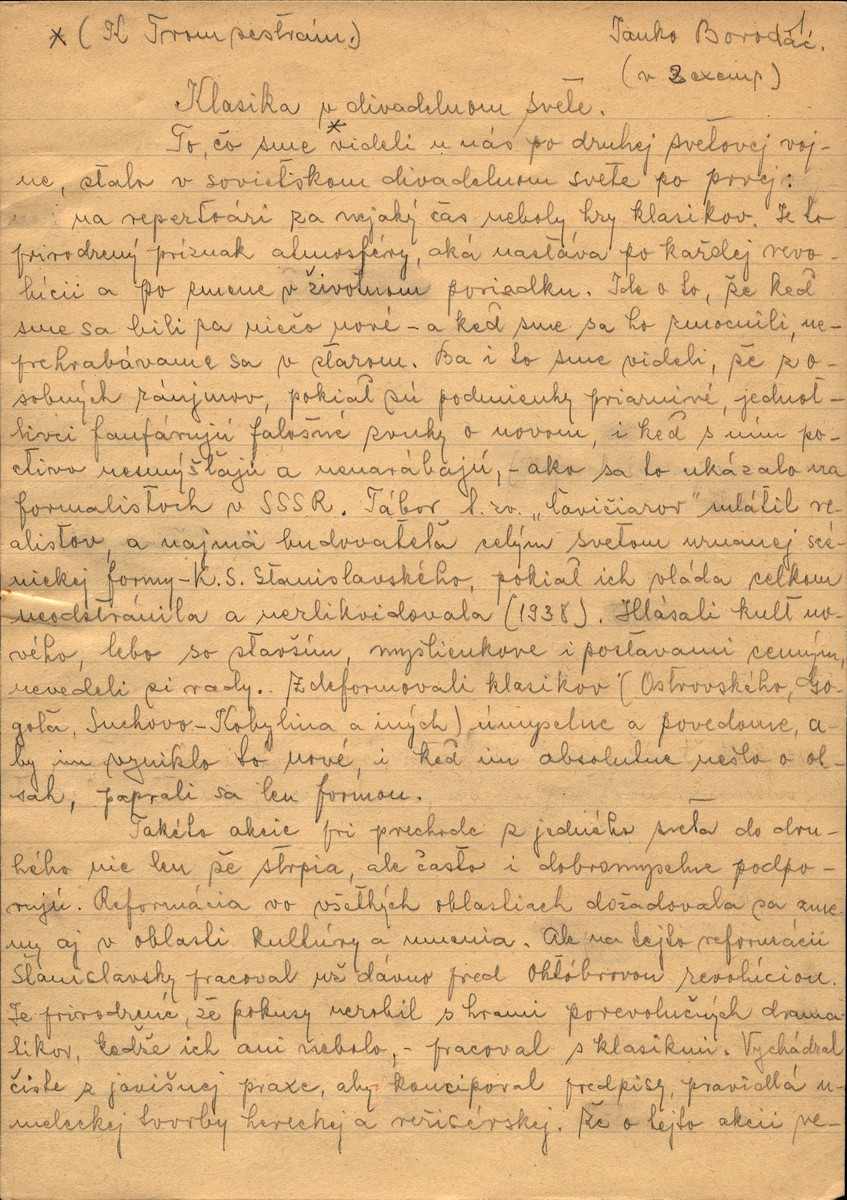 * (K Trom sestrám.)
Janko Borodáč. 1
(v 2 exemp)
Klasika v divadelnom svete.
*
To, čo sme videli u nás po druhej svetovej voj-
ne, stalo v sovietskom divadelnom svete po prvej:
na repertoári za nejaký čas neboly hry klasikov. Je to
prirodzený príznak atmosféry, aká nastáva po každej revo-
lúcii a po zmene v životnom poriadku. Ide o to, že keď
sme sa bili za niečo nové – a keď sme sa ho zmocnili, ne-
prehrabávame sa v starom. Ba i to sme videli, že z o-
sobných záujmov, pokiaľ sú podmienky priaznivé, jednot-
livci fanfárujú falošné zvuky o novom, i keď s ním po-
ctivo nesmýšľajú a nenarábajú, – ako sa to ukázalo na
formalistoch v SSSR. Tábor t. zv. „ľavičiarov" mlátil re-
alistov, a najmä budovateľa celým svetom uznanej scé-
nickej formy – K. S. Stanislavského, pokiaľ ich vláda celkom
neodstránila a nezlikvidovala (1938). Hlásali kult no-
vého, lebo so starším, myslienkove i postavami cenným,
nevedeli si rady. Zdeformovali klasikov (Ostrovského, Go-
goľa, Suchovo-Kobylina a iných) úmyselne a povedome, a-
by im vzniklo to nové, i keď im absolutne nešlo o ob-
sah, paprali sa len formou.
Takéto akcie pri prechode z jedného sveta do dru-
hého nie len že strpia, ale často i dobromyselne podpo-
rujú. Reformácia vo všetkých oblastiach dožadovala sa zme-
ny aj v oblasti kultúry a umenia. Ale na tejto reformácii
Stanislavsky pracoval už dávno pred Októbrovou revolúciou.
Je prirodzené, že pokusy nerobil s hrami porevolučných drama-
tikov, keďže ich ani nebolo, – pracoval s klasikmi. Vychádzal
čiste z javišnej praxe, aby koncipoval predpisy, pravidlá u-
meleckej tvorby hereckej a režisérskej. Že o tejto akcii ve-